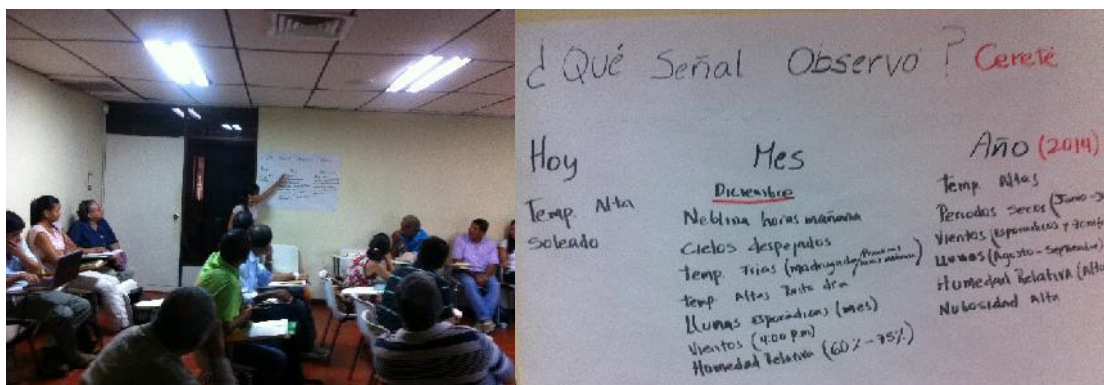 ¿Qué Señal Observo? Cereté
Hoy
Temp. Alta
Soleado
Mes
Diciembre
Neblina horas mañana
Cielos despejados
Temp. Frias (madrugada/
Temp Altas Resto dia
Lluvias Esporádicas (mes)
Vientos (4:00 P.m)
Humedad Relativa (60% - 75%)
Año (2014)
Temp. Altas
Periodos Secos (Junio -
Vientos (Esporadicos y
Lluvias (Agosto - Septiembre)
Humedad Relativa (Alta
Nubosidad Alta